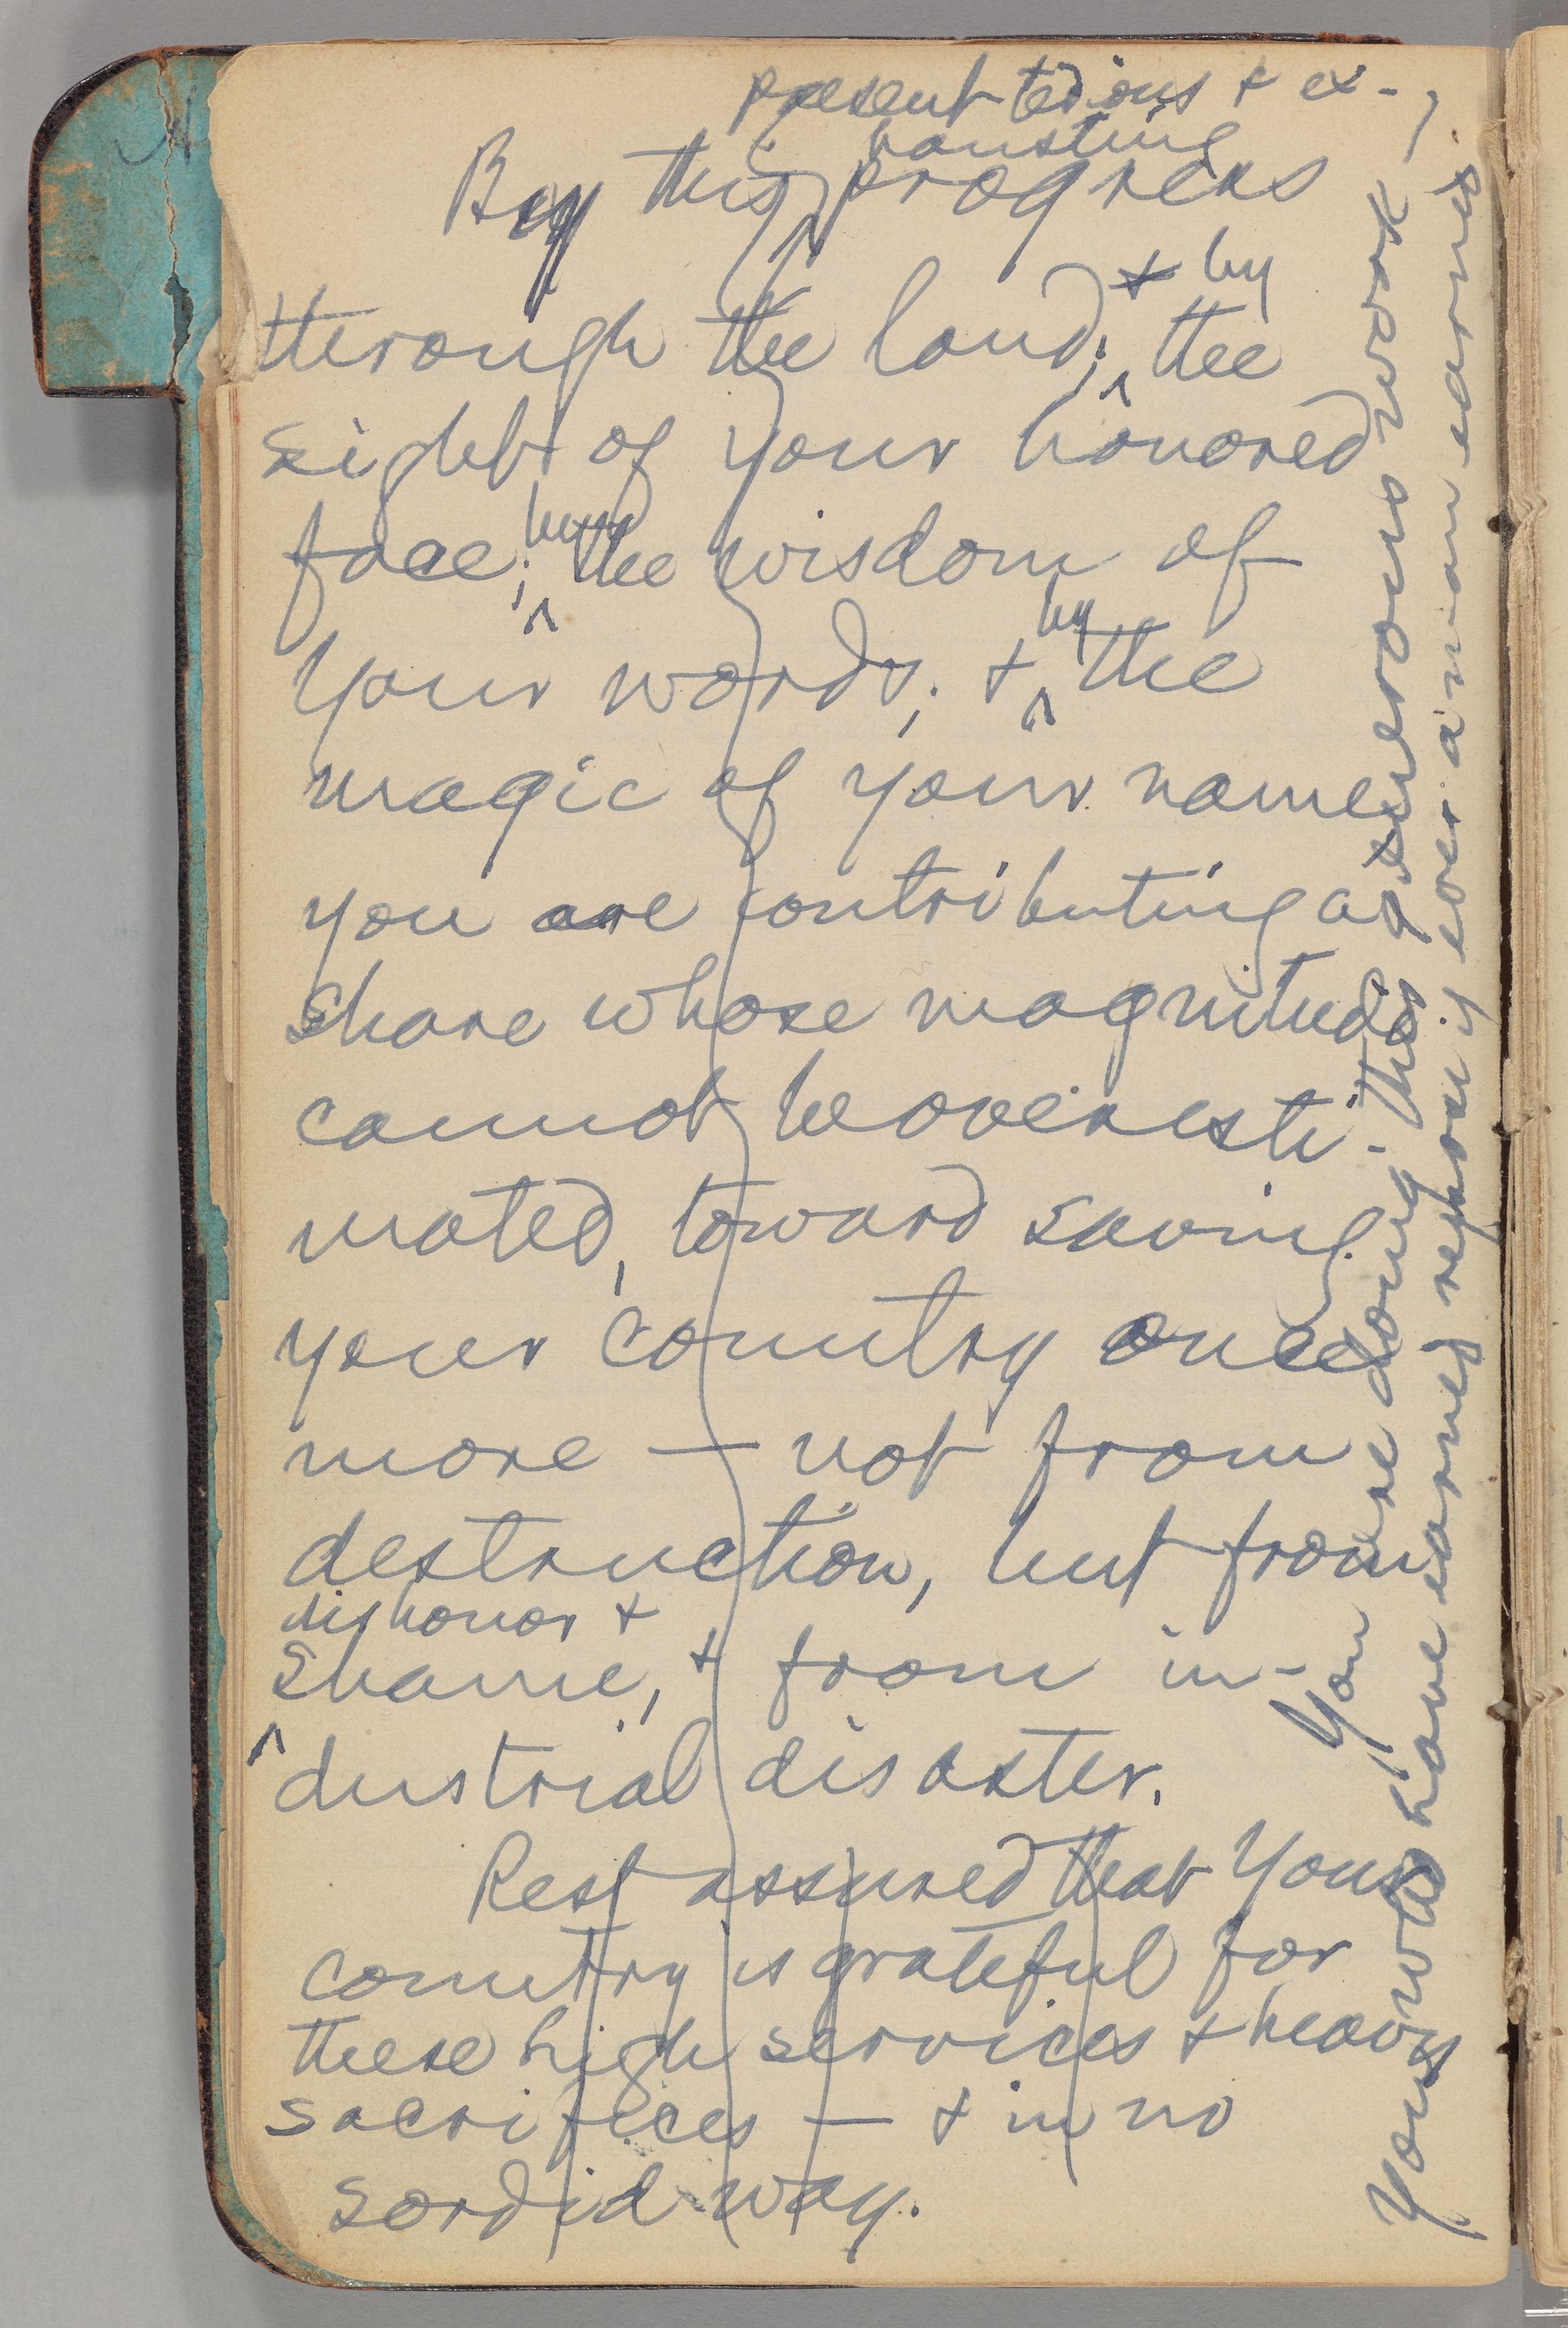 present tedious & ex-
hausting
By this progress
through the land; & by the
sight of your honored
face; by the wisdom of
your words; & by the
magic of your name
you are contributing a
share whose magnitude
cannot be overesti-
mated, toward saving
your country once
more — not from
destruction, but from
dishonor &
shame, & from in-
dustrial disaster.
Rest assured that your
country is grateful for
these high services & heavy
sacrifices — & in no
sordid way.
You are doing this generous work,
You who have earned repose if ever a man earned